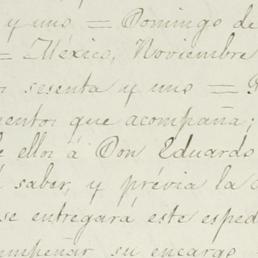 y uno = Domingo de
= México, Noviembre
sesenta y uno =
mentos que acompaña;
ellos á Don Eduardo
saber, y prévia la
se entregará este esped
su encargo